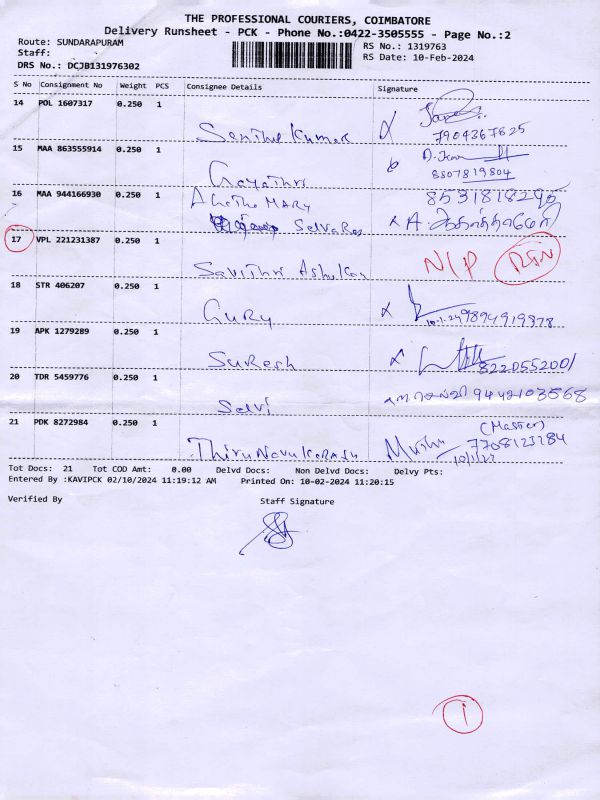 THE PROFESSIONAL COURIERS, COIMBATORE
Delivery Runsheet - PCK - Phone No.:0422-3505555 - Page No.:2
Route: SUNDARAPURAM
RS No.: 1319763
Staff:
RS Date: 10-Feb-2024
DRS No.: DCJB131976302
S No Consignment No Weight PCS Consignee Details Signature
14 POL 1607317 0.250 1
Senthil Kumar 7904367625
15 MAA 863555914 0.250 1
Gayathri 8807819804
16 MAA 944166930 0.250 1 8531818295
MARY
SelvaRaj
17 VPL 221231387 0.250 1
Savithri N/P RSN
18 STR 406207 0.250 1
Gury 9894919878
19 APK 1279289 0.250 1
Suresh 8220552001
20 TDR 5459776 0.250 1
Selvi 9442103568
21 PDK 8272984 0.250 1 (Master)
7708123284
Tot Docs: 21 Tot COD Amt: 0.00 Delvd Docs: Non Delvd Docs: Delvy Pts:
Entered By :KAVIPCK 02/10/2024 11:19:12 AM Printed On: 10-02-2024 11:20:15
Verified By Staff Signature
1